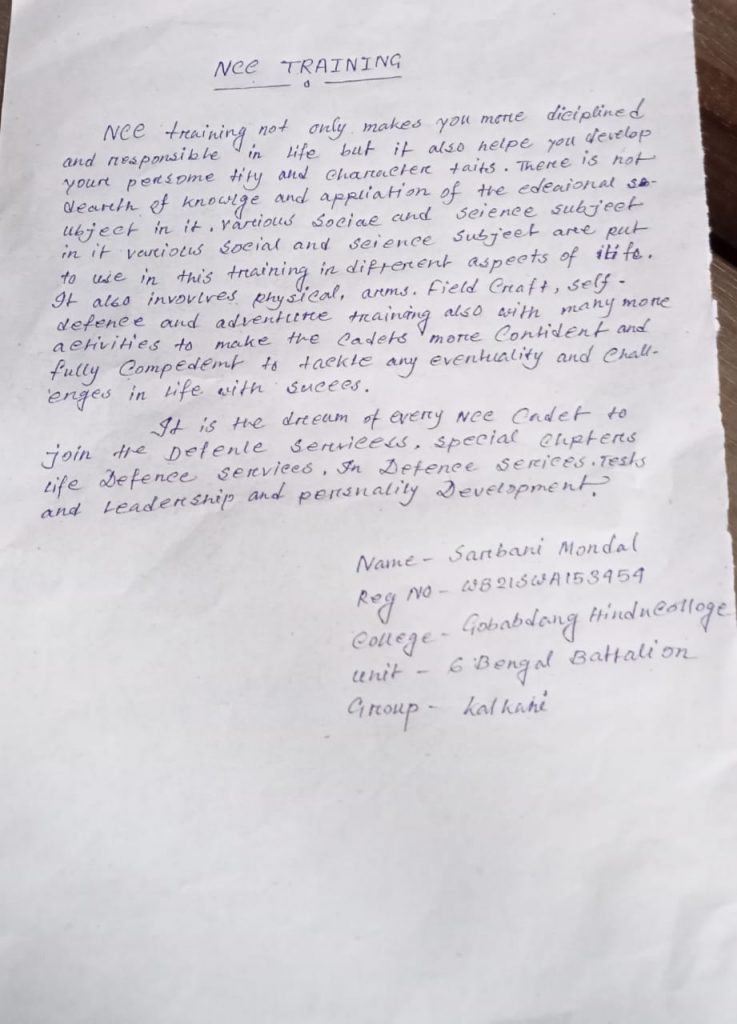 NCC TRAINING
NCC training not only makes you more diciplined
and responsible in life but it also helpe you develop
your persome tity and character taits. There is not
dearth of knowlge and appliation of the edeaional su-
ubject in it. various sociae and science subject
in it various social and science subject are put
to use in this training in different aspects of life.
It also invovlres physical, arms. Field Craft, self-
defence and adventure training also with many more
activities to make the cadets more Confident and
fully Compedent to tackle any eventuality and chall-
enges in life with succes.
It is the dream of every NCC Cadet to
join the Defenle serviceess. special chpters
life Defence services. In Defence serices. Tests
and Leadership and persnality Development.
Name - Sarbani Mondal
Reg NO - WB21SWA153454
College - Gobabdang Hindu Colloge
unit - 6 Bengal Battalion
Group - kalkani